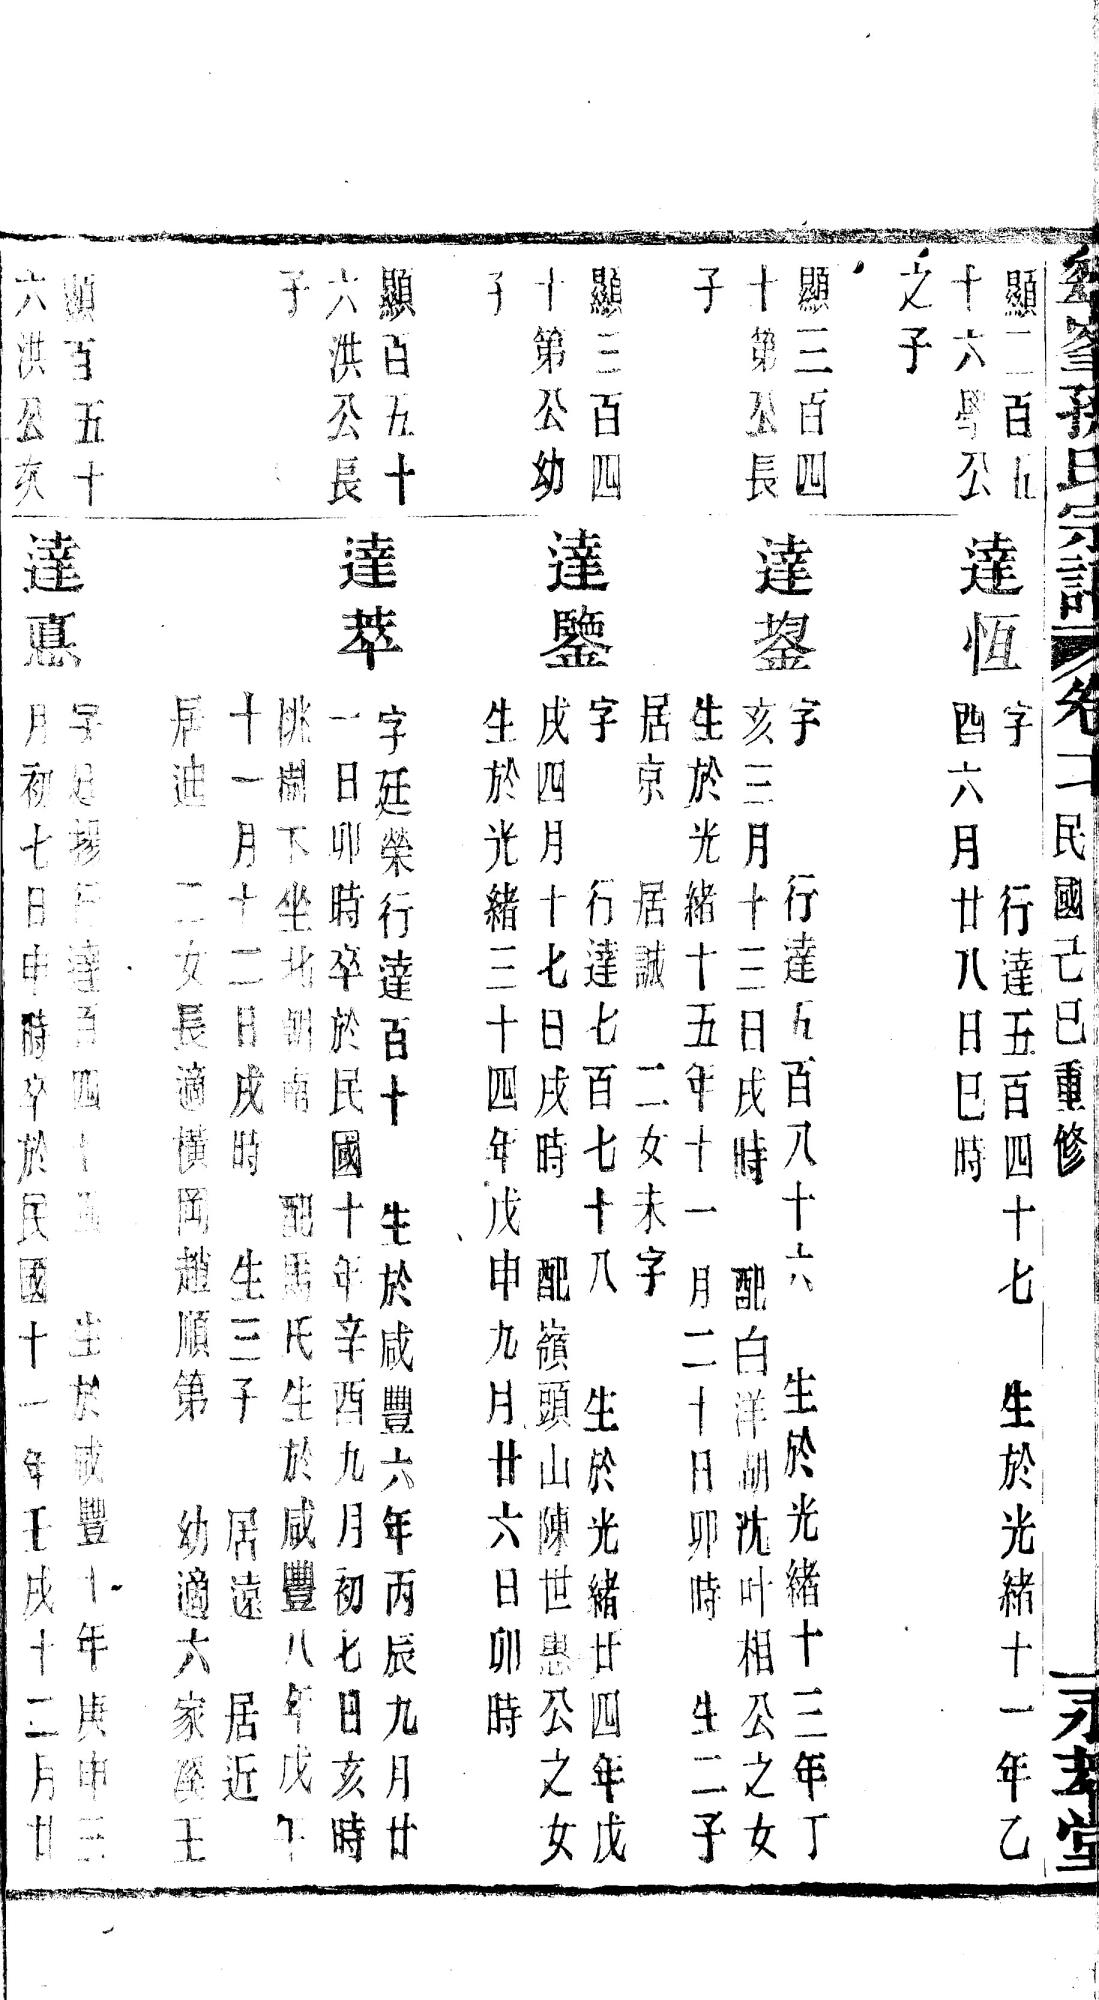 峯孫氏宗譜 卷二 民國己巳重修 永孝堂
顯二百五
十六學公
之子
達恆
字 行達五百四十七 生於光緒十一年乙
酉六月廿八日巳時
顯三百四
十第公長
子
達鋆
字 行達五百八十六 生於光緒十三年丁
亥三月十三日戌時 配白洋湖沈叶相公之女
生於光緒十五年十一月二十日卯時 生二子
居京 居誠 二女未字
顯三百四
十第公幼
子
達鑒
字 行達七百七十八 生於光緒廿四年戊
戌四月十七日戌時 配嶺頭山陳世惠公之女
生於光緒三十四年戊申九月廿六日卯時
顯百五十
六洪公長
子
達萃
字廷榮行達百十 生於咸豐六年丙辰九月廿
一日卯時卒於民國十年辛酉九月初七日亥時
桃樹下坐北朝南 配馬氏生於咸豐八年戊午
十一月十二日戌時 生三子 居遠 居近
居迪 二女長適橫岡趙順第 幼適六家溪王
顯百五十
六洪公次
達惪
字廷揚行達百四十五 生於咸豐十年庚申三
月初七日申時卒於民國十一年壬戌十二月廿